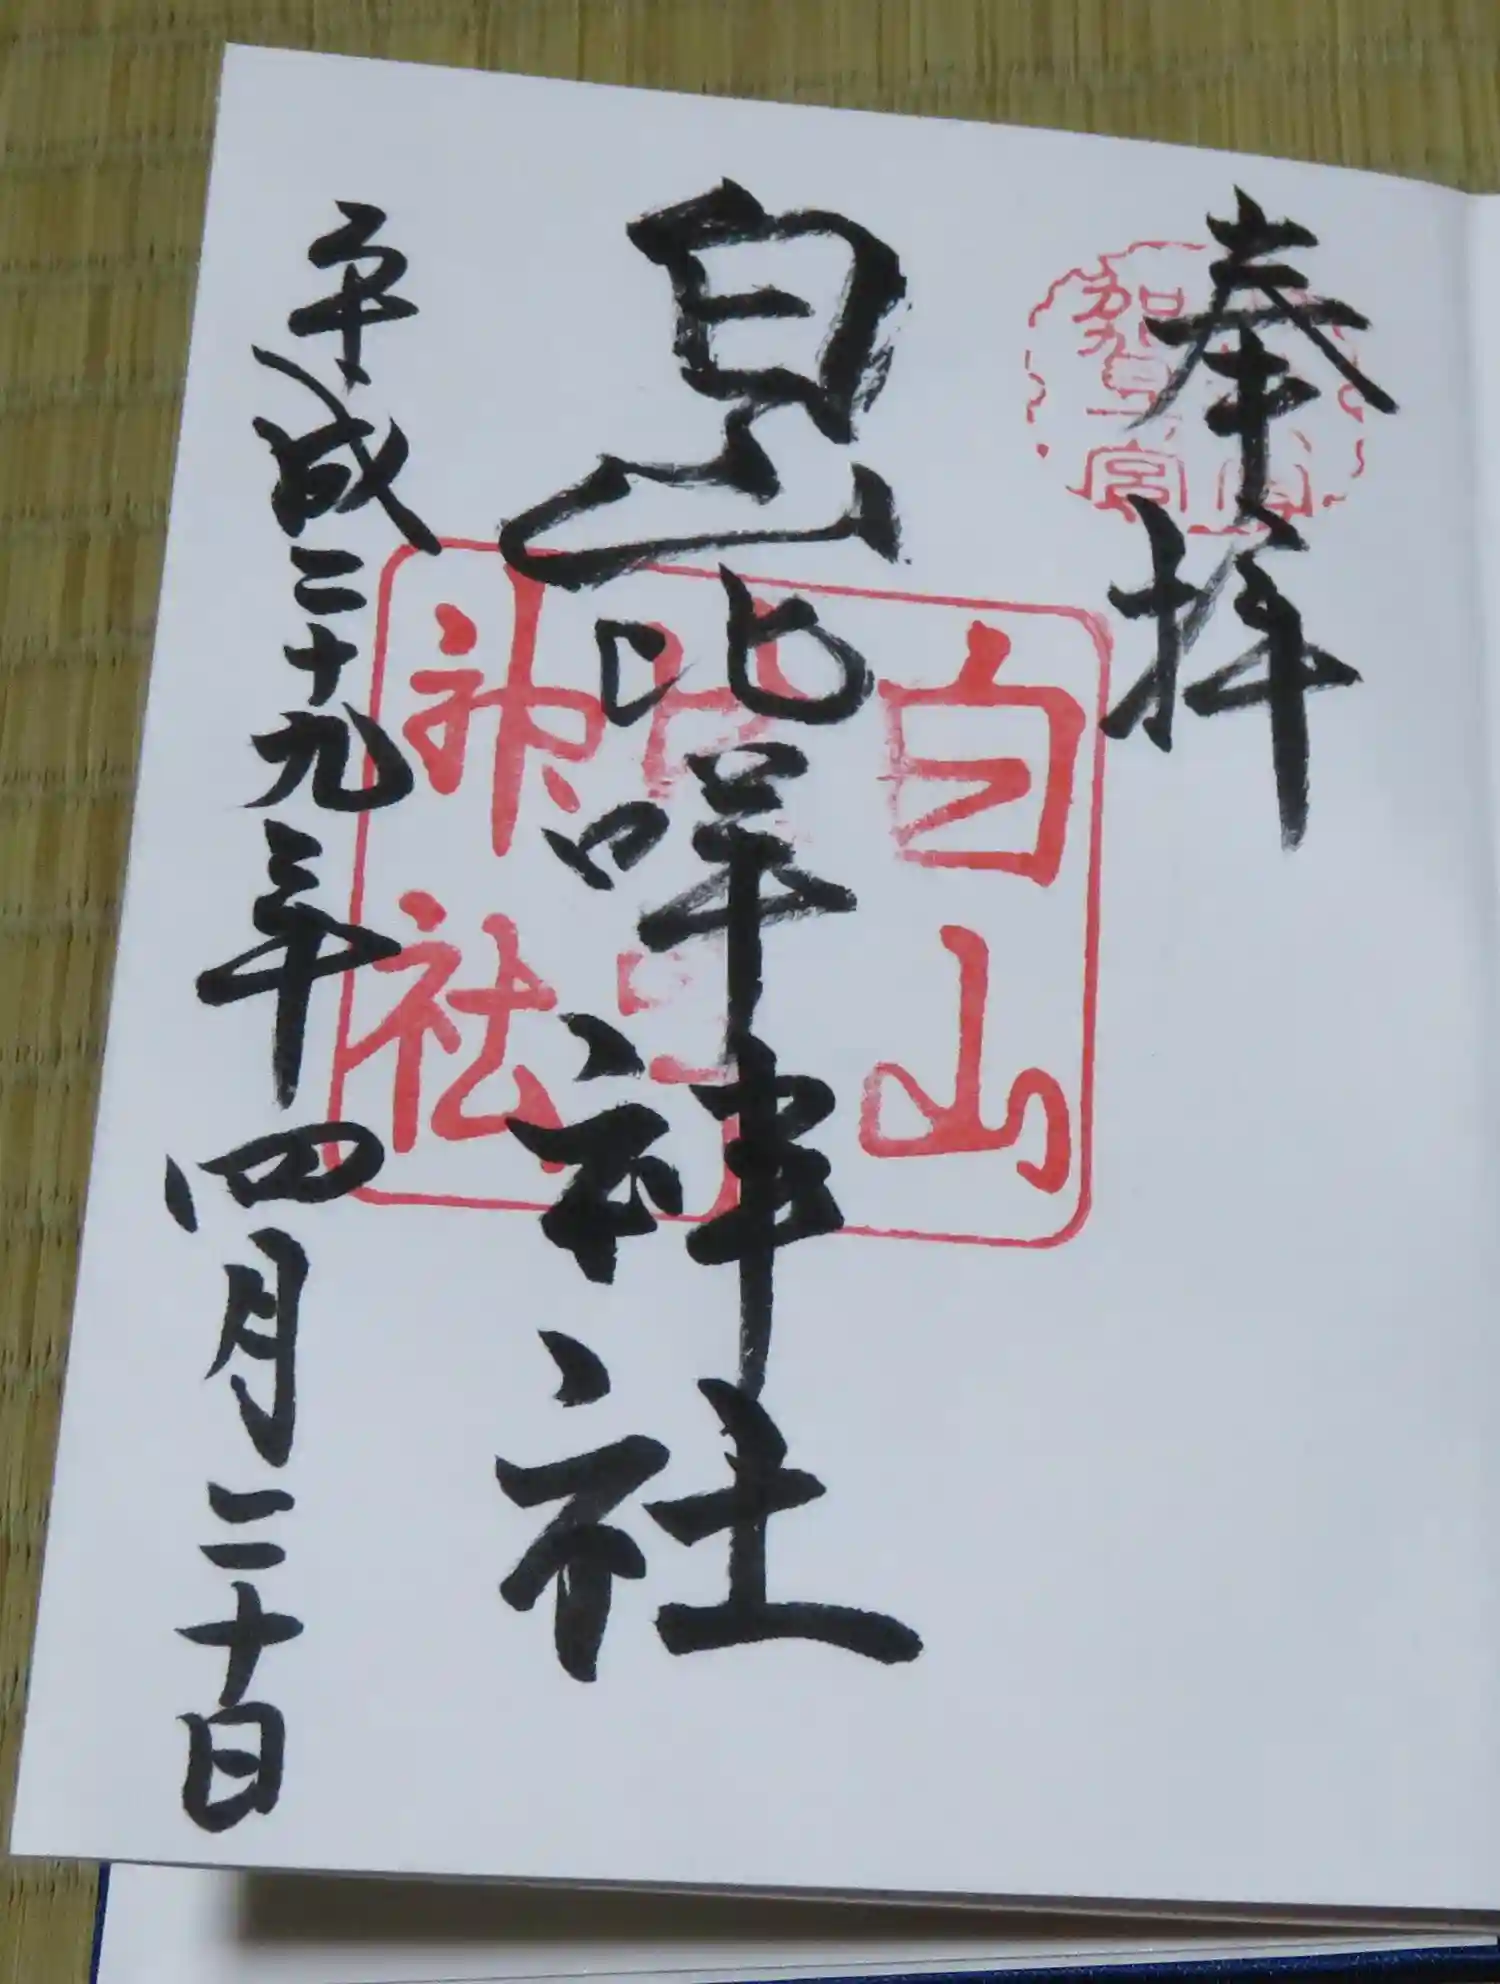 奉拝
白山比咩神社
平成二十九年四月二十日
白山
神社
加賀一宮